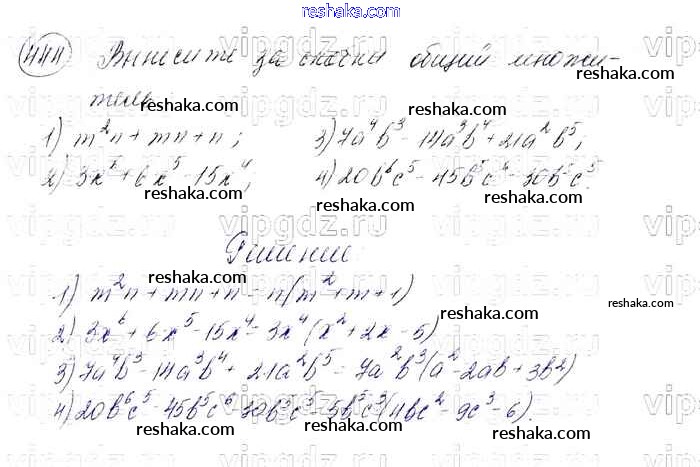 reshaka.com
444 Вынесите за скобки общий множи-
тель:
reshaka.com reshaka.com
1) m²n + mn + n; 3) 7a⁴b³ - 14a³b⁴ + 21a²b⁵;
2) 3x⁶ + 6x⁵ - 15x⁴; 4) 20b⁶c⁵ - 45b⁵c⁶ - 30b⁵c⁵.
reshaka.com reshaka.com
Решение
reshaka.com
1) m²n + mn + n = n(m² + m + 1)
reshaka.com
2) 3x⁶ + 6x⁵ - 15x⁴ = 3x⁴(x² + 2x - 5)
reshaka.com
3) 7a⁴b³ - 14a³b⁴ + 21a²b⁵ = 7a²b³(a² - 2ab + 3b²)
reshaka.com
reshaka.com reshaka.com
reshaka.com